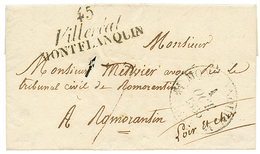 45
Villeréal
MONTFLANQUIN
Monsieur
Monsieur Messier avoué près le
tribunal civil de Romorantin
A Romorantin
Loir et cher